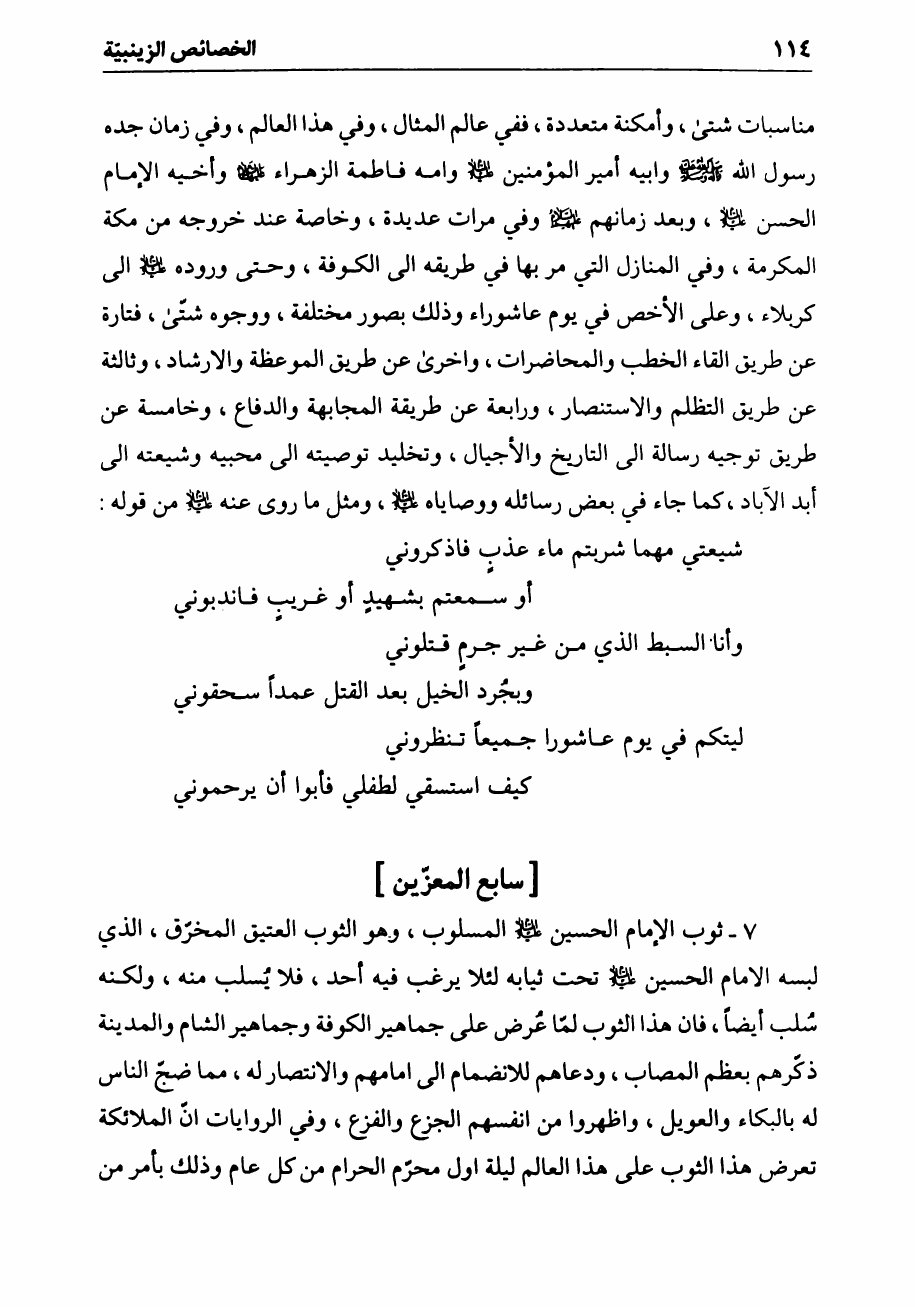 ١١٤ الخصائص الزينبيّة
مناسبات شتىٰ ، وأمكنة متعددة ، ففي عالم المثال ، وفي هذا العالم ، وفي زمان جده
رسول الله ﷺ وابيه أمير المؤمنين عليه السلام وامه فاطمة الزهراء عليها السلام وأخيه الإمام
الحسن عليه السلام ، وبعد زمانهم عليهم السلام وفي مرات عديدة ، وخاصة عند خروجه من مكة
المكرمة ، وفي المنازل التي مر بها في طريقه الى الكوفة ، وحتى وروده عليه السلام الى
كربلاء ، وعلى الأخص في يوم عاشوراء وذلك بصور مختلفة ، ووجوه شتّىٰ ، فتارة
عن طريق القاء الخطب والمحاضرات ، واخرىٰ عن طريق الموعظة والارشاد ، وثالثة
عن طريق التظلم والاستنصار ، ورابعة عن طريقة المجابهة والدفاع ، وخامسة عن
طريق توجيه رسالة الى التاريخ والأجيال ، وتخليد توصيته الى محبيه وشيعته الى
أبد الآباد ، كما جاء في بعض رسائله ووصاياه عليه السلام ، ومثل ما روى عنه عليه السلام من قوله :
شيعتي مهما شربتم ماء عذبٍ فاذكروني
أو سمعتم بشهيدٍ أو غريبٍ فاندبوني
وأنا السبط الذي من غير جرمٍ قتلوني
وبجُرد الخيل بعد القتل عمداً سحقوني
ليتكم في يوم عاشورا جميعاً تنظروني
كيف استسقي لطفلي فأبوا أن يرحموني
[ سابع المعزّين ]
٧ ـ ثوب الإمام الحسين عليه السلام المسلوب ، وهو الثوب العتيق المخرّق ، الذي
لبسه الامام الحسين عليه السلام تحت ثيابه لئلا يرغب فيه أحد ، فلا يُسلب منه ، ولكنه
سُلب أيضاً ، فان هذا الثوب لمّا عُرض على جماهير الكوفة وجماهير الشام والمدينة
ذكّرهم بعظم المصاب ، ودعاهم للانضمام الى امامهم والانتصار له ، مما ضجّ الناس
له بالبكاء والعويل ، واظهروا من انفسهم الجزع والفزع ، وفي الروايات انّ الملائكة
تعرض هذا الثوب على هذا العالم ليلة اول محرّم الحرام من كل عام وذلك بأمر من